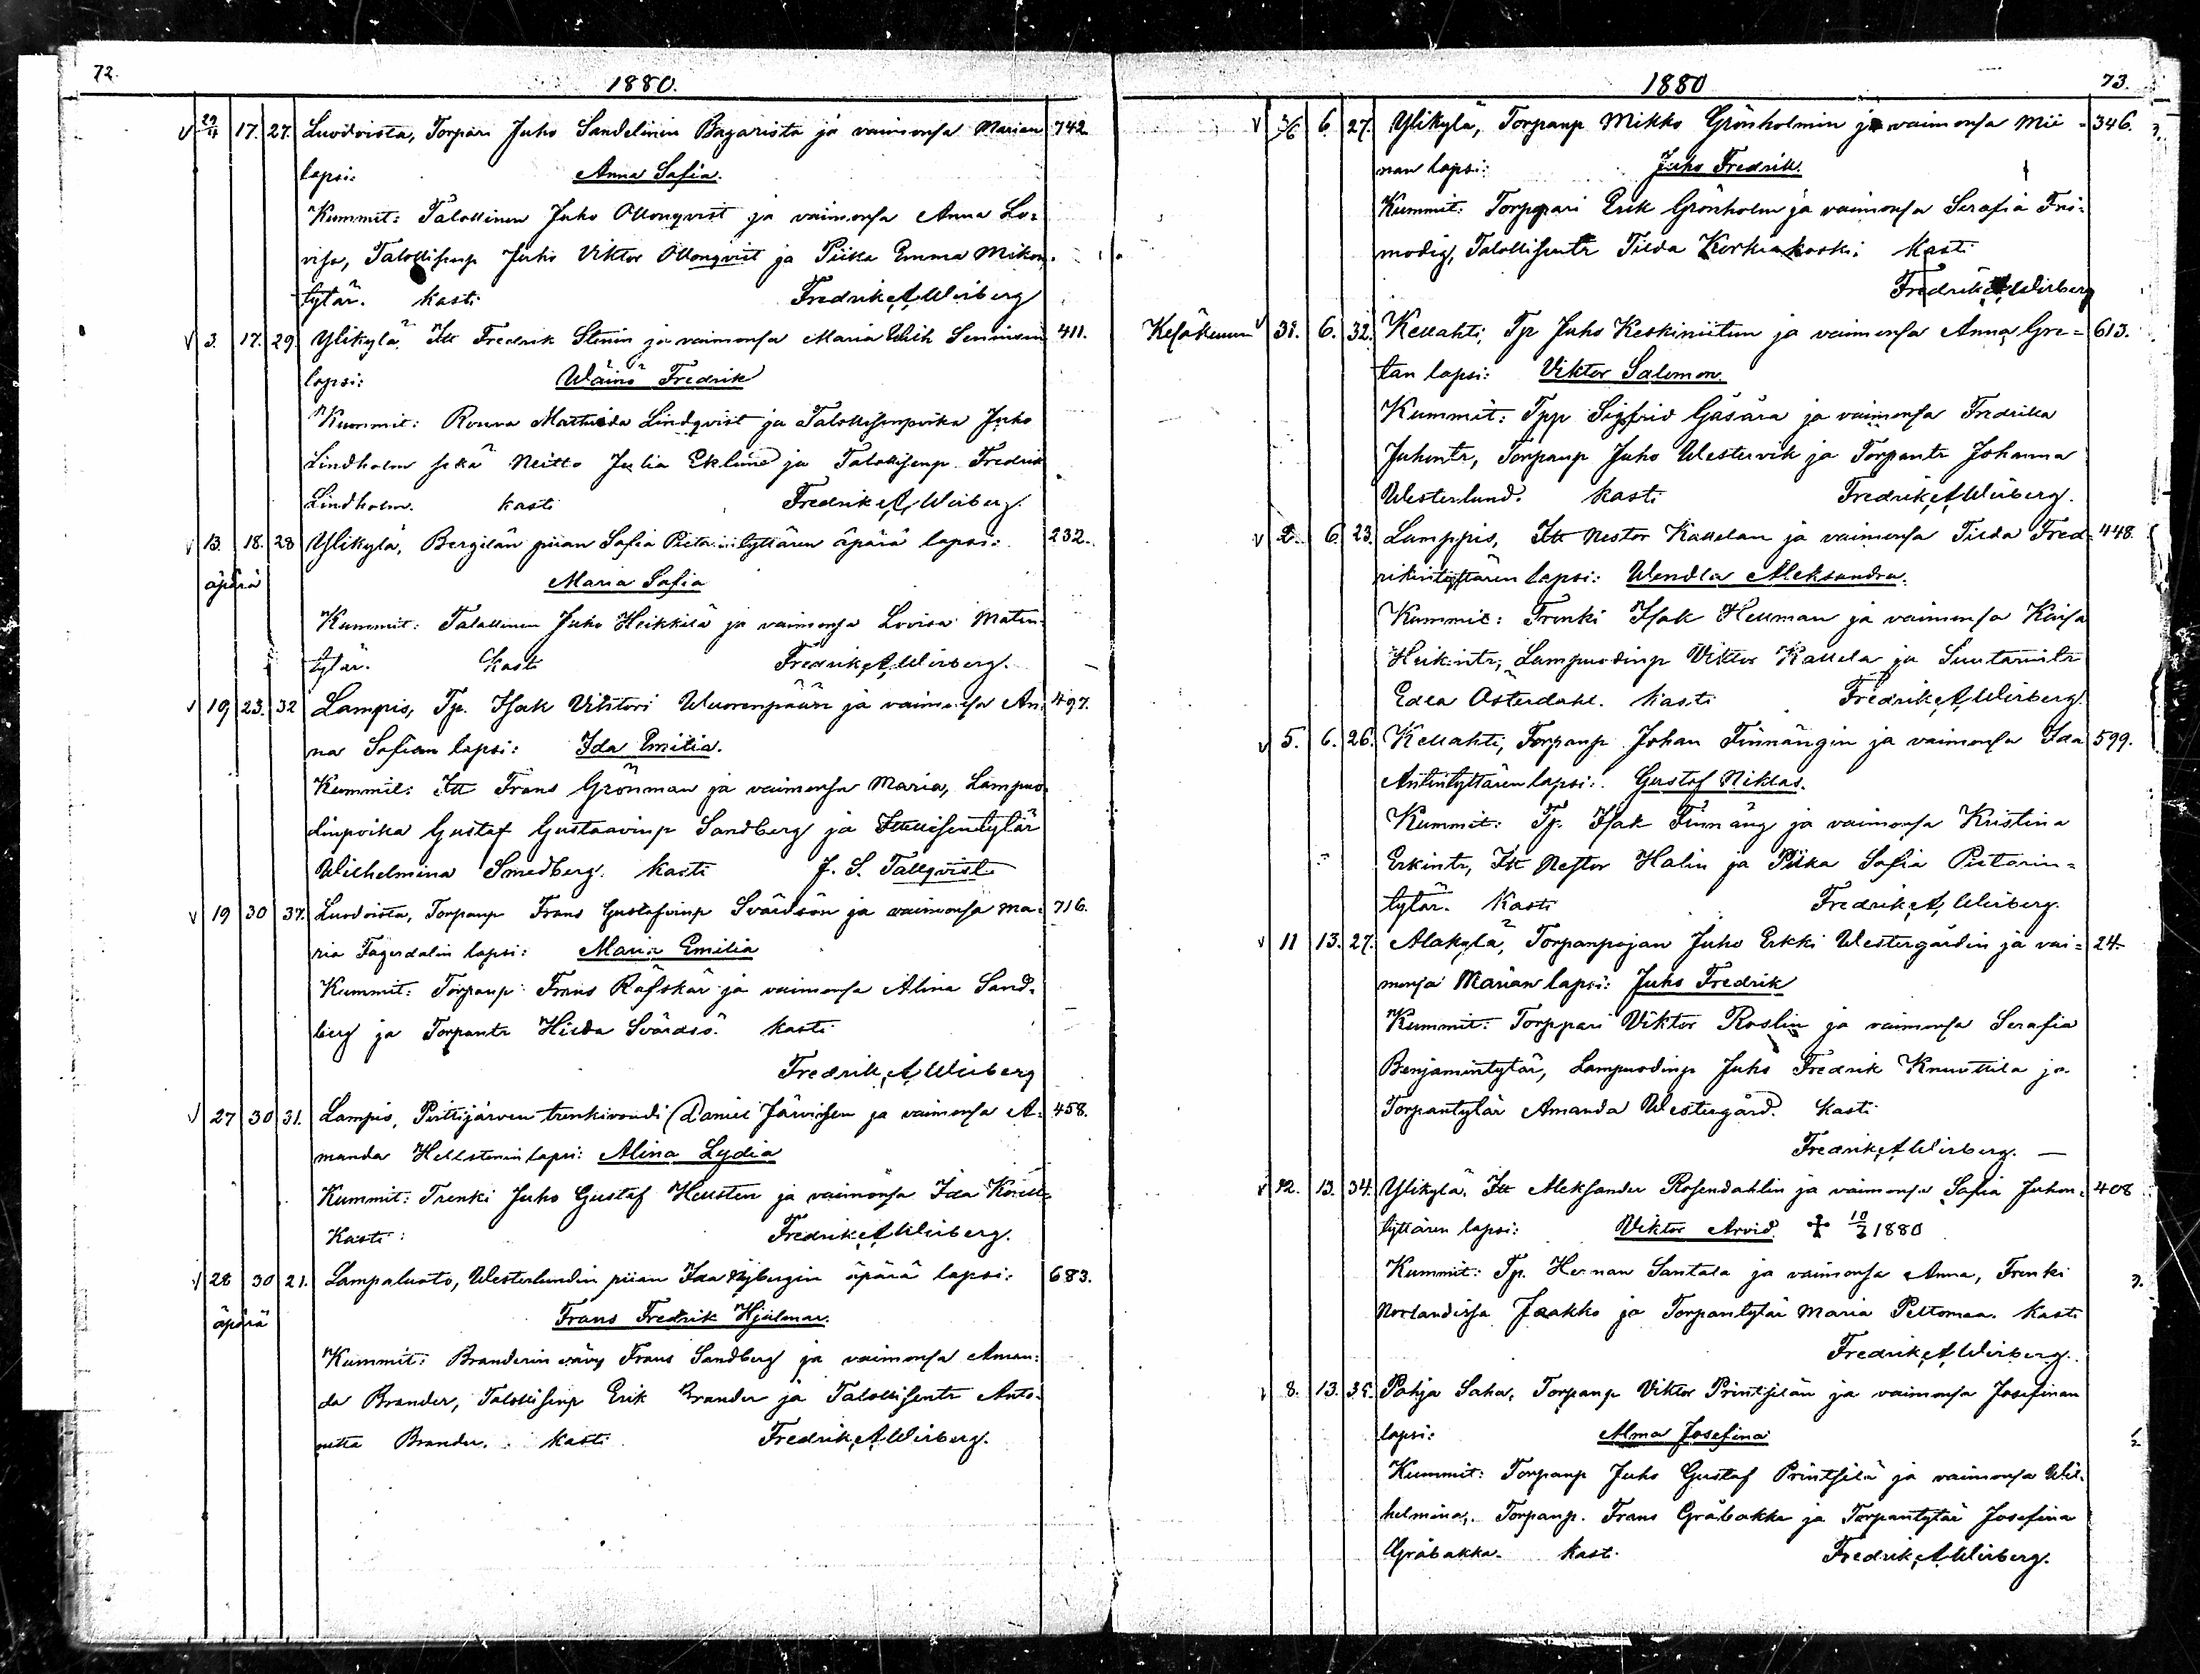 72.
1880.
v 29/4 17. 27. Luodoista, Torpari Juho Sandelinin Bagarista ja vaimonsa Marian 742
lapsi: Anna Sofia.
Kummit: Talollinen Juho Ollonqvist ja vaimonsa Anna Lo=
visa, Talollisenp Juho Viktor Ollonqvist ja Piika Emma Mikon-
tytär. Kasti Fredrik A Wirberg
v 3. 17. 29 Ylikylä, Itt Fredrik Stenin ja vaimonsa Maria Wilh 411.
lapsi: Wäinö Fredrik
Kummit: Rouva Mathilda Lindqvist ja Talollisenpoika Juho
Lindholm sekä Neitto Julia Eklund ja Talollisenp. Fredrik
Lindholm. Kasti Fredrik A Wirberg.
v 13. 18. 28 Ylikylä, Bergilän piian Sofia Pietarintyttären äpärä lapsi: 232.
äpärä Maria Sofia
Kummit: Talollinen Juho Heikkilä ja vaimonsa Lovisa Matin-
tytär. Kasti Fredrik A Wirberg.
v 19 23. 32 Lampis, Tp. Isak Viktori Wuorenpään ja vaimonsa An- 497.
na Sofian lapsi: Ida Emilia.
Kummit: Itt Frans Grönman ja vaimonsa Maria, Lampuo-
dinpoika Gustaf Gustaavinp Sandberg ja Itsellisentytär
Wilhelmina Smedberg. Kasti J. S. Tallqvist
v 19 30 37. Luodoista, Torpanp Frans Gustafvinp Svärdsön ja vaimonsa Ma- 716.
ria Fagerdalin lapsi: Maria Emilia
Kummit: Torpanp Frans Räfskär ja vaimonsa Alina Sand-
berg ja Torpantr Hilda Svärdsö. Kasti
Fredrik A Wirberg
v 27 30 31. Lampis, Pirttijärven trenkivoudi Daniel Järvisen ja vaimonsa A- 458.
manda Hellstenin lapsi: Alina Lydia
Kummit: Trenki Juho Gustaf Hellsten ja vaimonsa Ida
Kasti: Fredrik A Wirberg.
v 28 30 21. Lampaluoto, Westerlundin piian Ida Nybergin äpärä lapsi: 683.
äpärä Frans Fredrik Hjalmar.
Kummit: Branderin vävy Frans Sandberg ja vaimonsa Aman-
da Brander, Talollisenp Erik Brander ja Talollisentr Anto-
netta Brander. Kasti Fredrik A Wirberg.
1880
73.
v 3/6 6. 27. Ylikylä, Torpanp Mikko Grönholmin ja vaimonsa Mii= 346.
nan lapsi: Juho Fredrik.
Kummit: Torppari Erik Grönholm ja vaimonsa Serafia Fri=
modig, Talollisentr Tilda Korkiakoski. Kasti
Fredrik A Wirberg
Kesäkuun v 31. 6. 32. Kellahti, Tp Juho Keskiniitun ja vaimonsa Anna Gre= 613.
tan lapsi: Viktor Salomon.
Kummit: Tpp Sigfrid Gäsära ja vaimonsa Fredrika
Juhontr, Torpanp Juho Westervik ja Torpantr Johanna
Westerlund. Kasti Fredrik A Wirberg.
v 2. 6. 23. Lamppis, Itt Nestor Kallelan ja vaimonsa Tilda Fred- 448.
rikintyttären lapsi: Wendla Aleksandra.
Kummit: Trenki Isak Hellman ja vaimonsa Kaisa
Heikintr, Lampuodinp Viktor Kallela ja Suutarintr
Edla Österdahl. Kasti Fredrik A Wirberg.
v 5. 6. 26. Kellahti, Torpanp Johan Finnängin ja vaimonsa Ida 599.
Antintyttären lapsi: Gustaf Niklas.
Kummit: Tp. Isak Finnäng ja vaimonsa Kristina
Erkintr, Itt Nestor Halin ja Piika Sofia Pietarin=
tytär. Kasti Fredrik A Wirberg.
v 11 13. 27. Alakylä, Torpanpojan Juho Erkki Westergårdin ja vai= 24.
monsa Marian lapsi: Juho Fredrik
Kummit: Torppari Viktor Roslin ja vaimonsa Serafia
Benjamintytär, Lampuodinp Juho Fredrik Knuuttila ja
Torpantytär Amanda Westergård. Kasti
Fredrik A Wirberg.
v 12. 13. 34. Ylikylä, Itt Aleksander Rosendahlin ja vaimonsa Sofia Juhon- 408
tyttären lapsi: Viktor Arvid. ✝ 10/7 1880
Kummit: Tp. Herman Santala ja vaimonsa Anna, Trenki
Norlandissa Jaakko ja Torpantytär Maria Peltomaa. Kasti
Fredrik A Wirberg.
v 8. 13. 35. Pohja Saha, Torpanp Viktor Printsilän ja vaimonsa Josefinan
lapsi: Alma Josefina
Kummit: Torpanp Juho Gustaf Printsilä ja vaimonsa Wil-
helmina, Torpanp. Frans Gråbakka ja Torpantytär Josefina
Gråbakka. Kasti Fredrik A Wirberg.